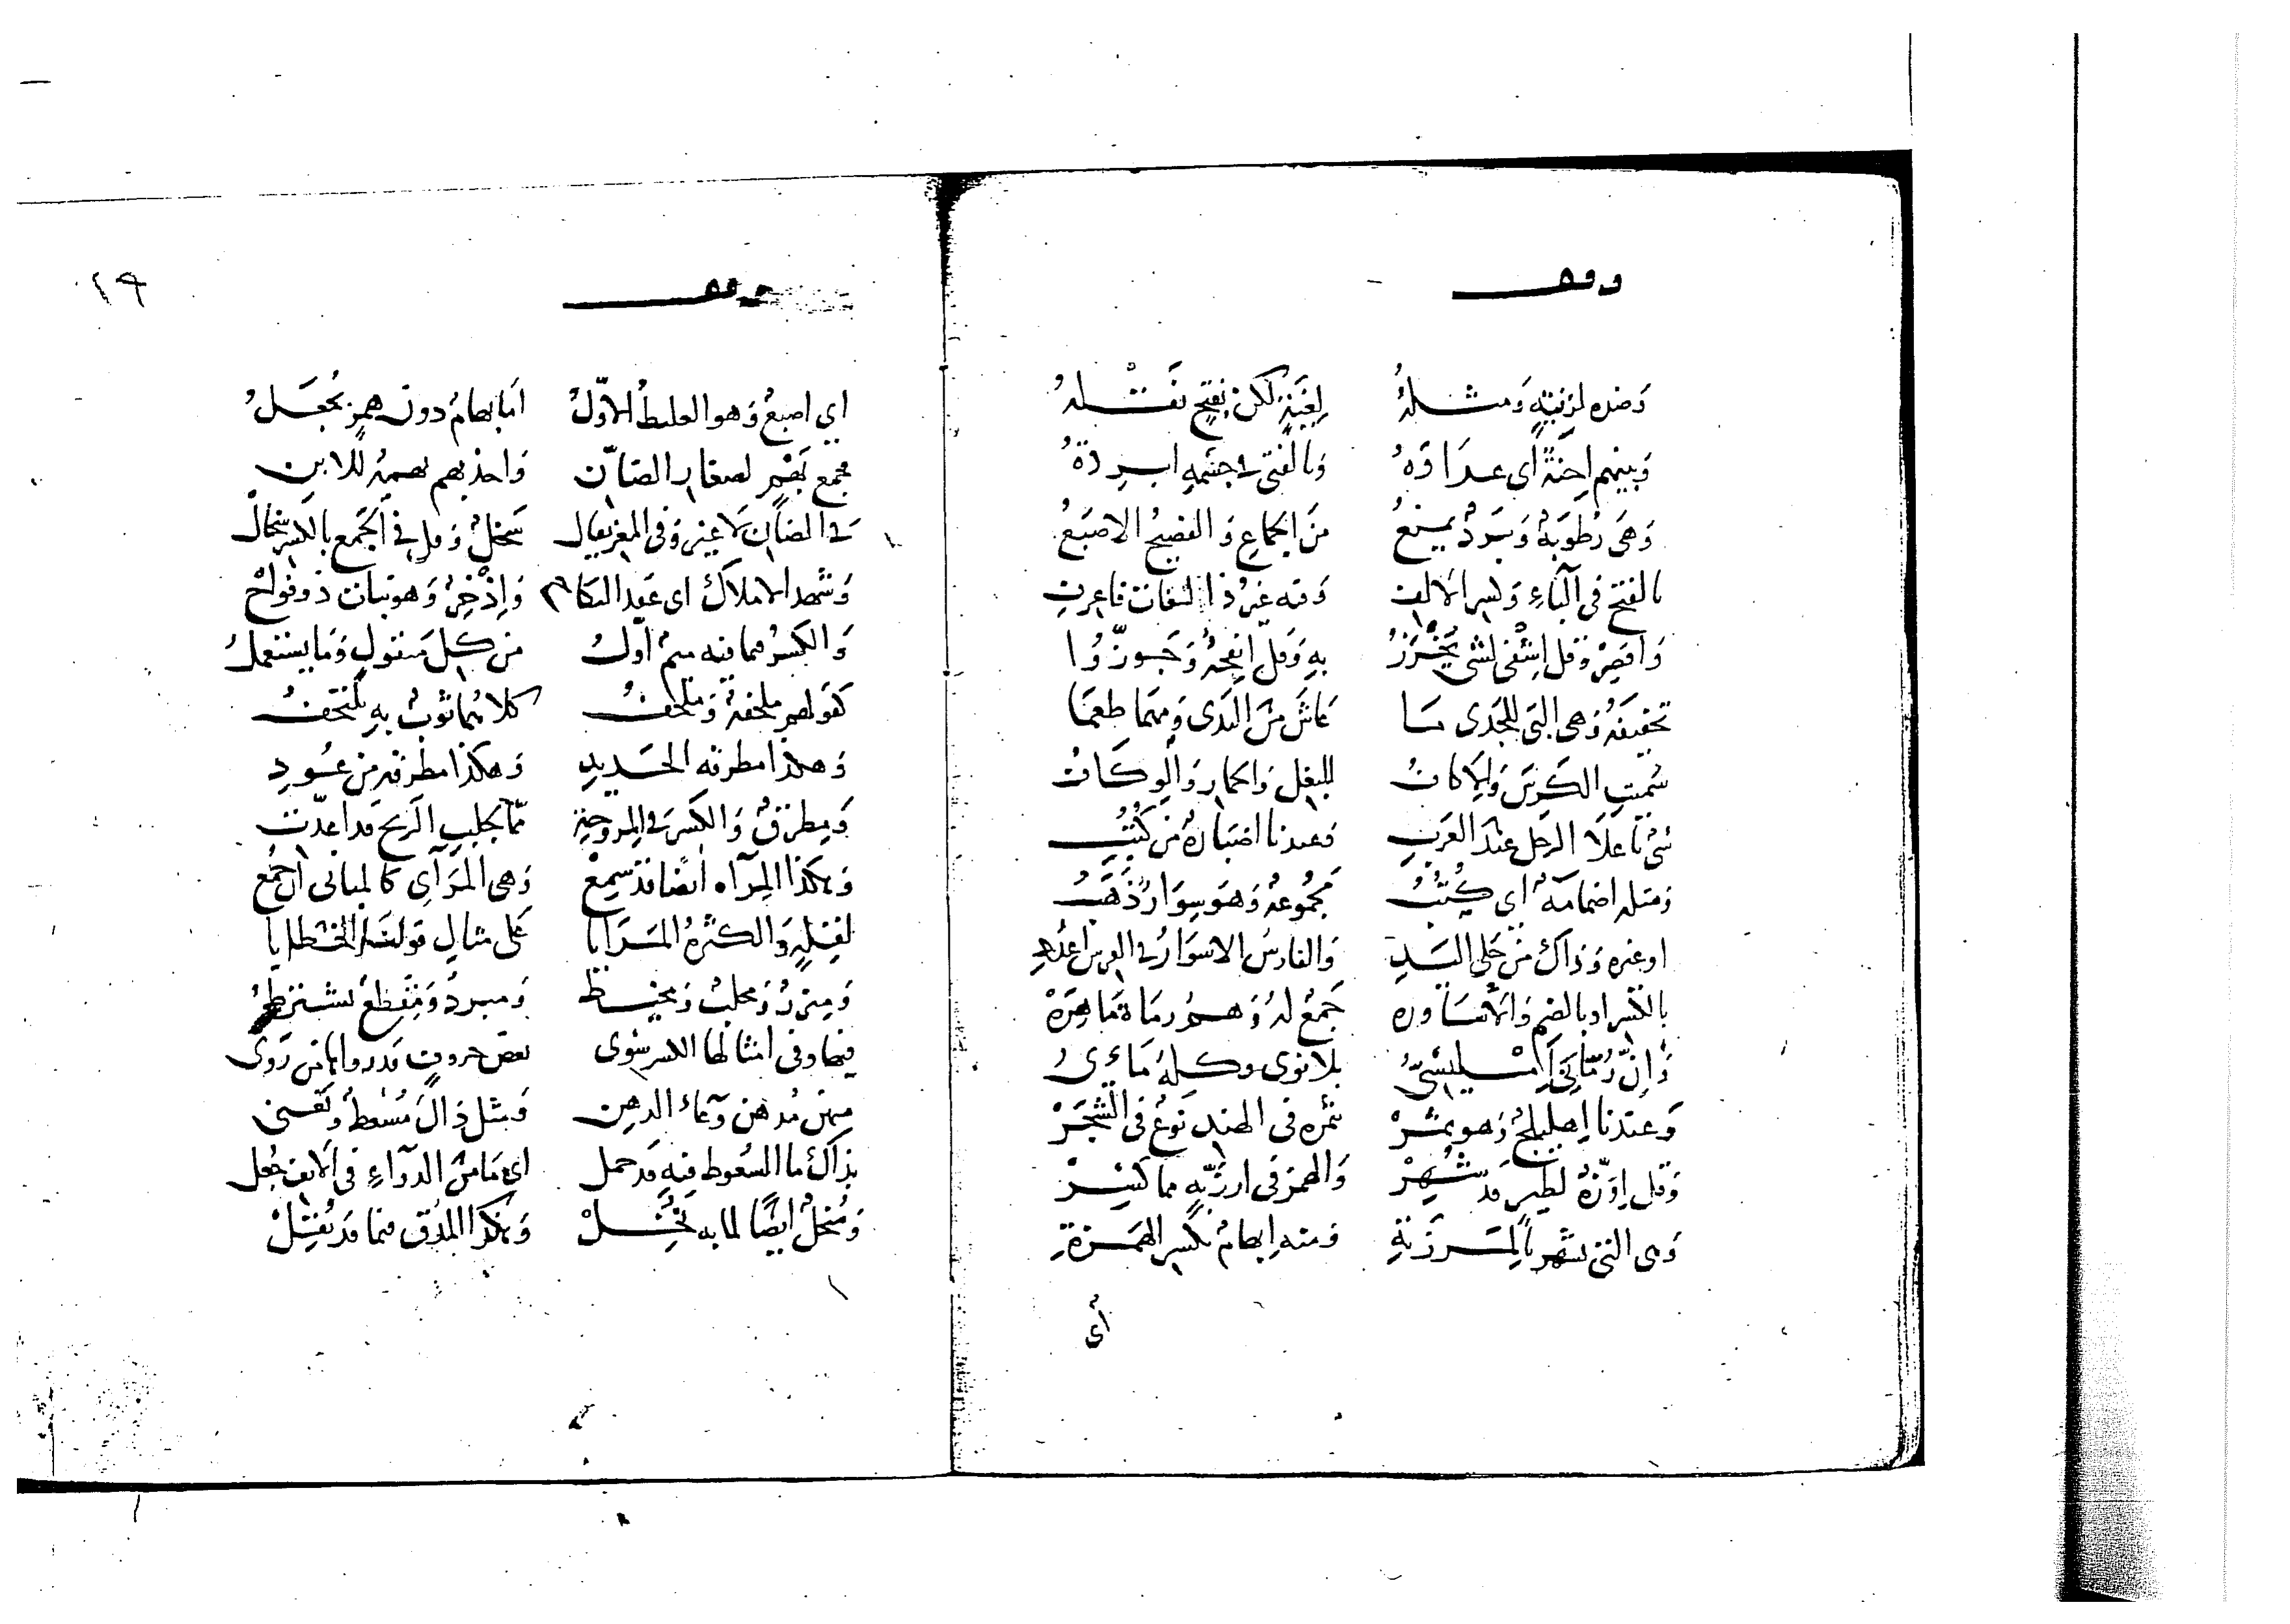 وقف
وَضده لزنيَةٍ وَمثلهُ لِغَيَّةٍ لكن بفتحٍ نقْلهُ
وَبينهم اِحْنَةٌ اى عداوَهْ وَبالفتى فى جسْمهِ ابرِدةُ
وَهىَ رُطوبَةٌ وَبَردٌ يمنعُ منَ الجماعِ وَالفصيحُ الاصبَعُ
بالفتح فى الباءِ وَكسر الالف وَفيه غيرُ ذا لغات فاعرفِ
وَاقصِرْ وَقل اِشْفى لشىءٍ يَخْرزُ بهِ وَقل اِنفحةٌ وَجوزّوُا
تخفيفَهُ وَهى التى للجَدى مَا عاشَ منَ الندى وَمهما طعمَا
سُميتِ الكَرِشَ وَالِاكافُ للبغلِ وَالحمارِ وَالوِكَافُ
شىءٌ علا الرحل عندَ العَربِ وَعندنا اضبَارةٌ من كُتُبِ
وَمثله اضمامَةٌ اى كُتُبُ مَجْمُوعةٌ وَهوَ سِوَارٌ ذهَبُ
او غيره وَذاك من حَلى اليَدِ وَالفارسُ الاسوَارُ فى الفرس
بالكسر او بالضم وَالاسَاوره جَمعٌ لهُ وَهم رمَاةٌ مَاهِرَهْ
وَاِنَّ رُمَّانِى اِمْليسىُّ بلا نوى وكله مَاءىُّ
وَعندنا اِهليلجٌ وَهو ثمَرْ ثمره فى الهند نَوعٌ فى الشَّجَرْ
وَقل اِوَزّةٌ لطيرٍ قد شُهِرْ وَالهمز فى ارزَبّةٍ مما كُسِرْ
وَهى التى تشهر بالمَرزَبةِ وَمنه اِبهامٌ بكسر الهَمزةِ
أى
١٩
وقف
اى اصبعٌ وَهو الغليظُ الاوّلُ اما بهامٌ دون همزٍ يُجْعَلُ
فجمع بَهْمٍ لصغار الضّان وَاحذ بهم بهمةٌ للابنِ
فى الضأنِ لا غير وَفى المعز يقال سَخلٌ وَقل فى الجَمع بالكسر سخَالْ
وَشهد الاملاكَ اى عَقد النكاح وَاِذْخِرٌ وَهو نبات ذو فواحْ
وَالكسرُ فيما فيه ميم اوّلُ من كل منقولٍ وَمَا يستعملُ
كقولهم ملحفةٌ وَملحَفُ كلاهما ثوبٌ بهِ يلتحفُ
وَهكذا مطرقه الحَديدِ وَهكذا مطرقةٌ من عُودِ
وَمِطرَقٌ وَالكسرَ فى المِروحةِ ممّا يجلبِ الريح قد اعدّتِ
وَهكذا المِرآه ايضًا قد سُمِعْ وَهى المَرآى كالمبانى ان جُمع
لقِلةٍ وَالكثرةُ المَرَايَا على مثالِ قولنَا الخَطايا
وَمِئزرٌ وَمحلبٌ وَمخيطُ وَمبردٌ وَمِقطعٌ يشترطُ
فيها وفى امثالها الكسر سِوى بعضِ حروفٍ قد روَاها من رَوى
منهن مُدهُن وَعاء الدهن وَمثل ذاك مُسْعطٌ وَتعنى
بذاك ما السُعوط فيهِ قد حمل اى مَا من الدوَاءِ فى الانف جُعل
وَمُنخلٌ ايضًا لما به نُخِلْ وَهكذا المُدُق فيما قد نُقِلْ